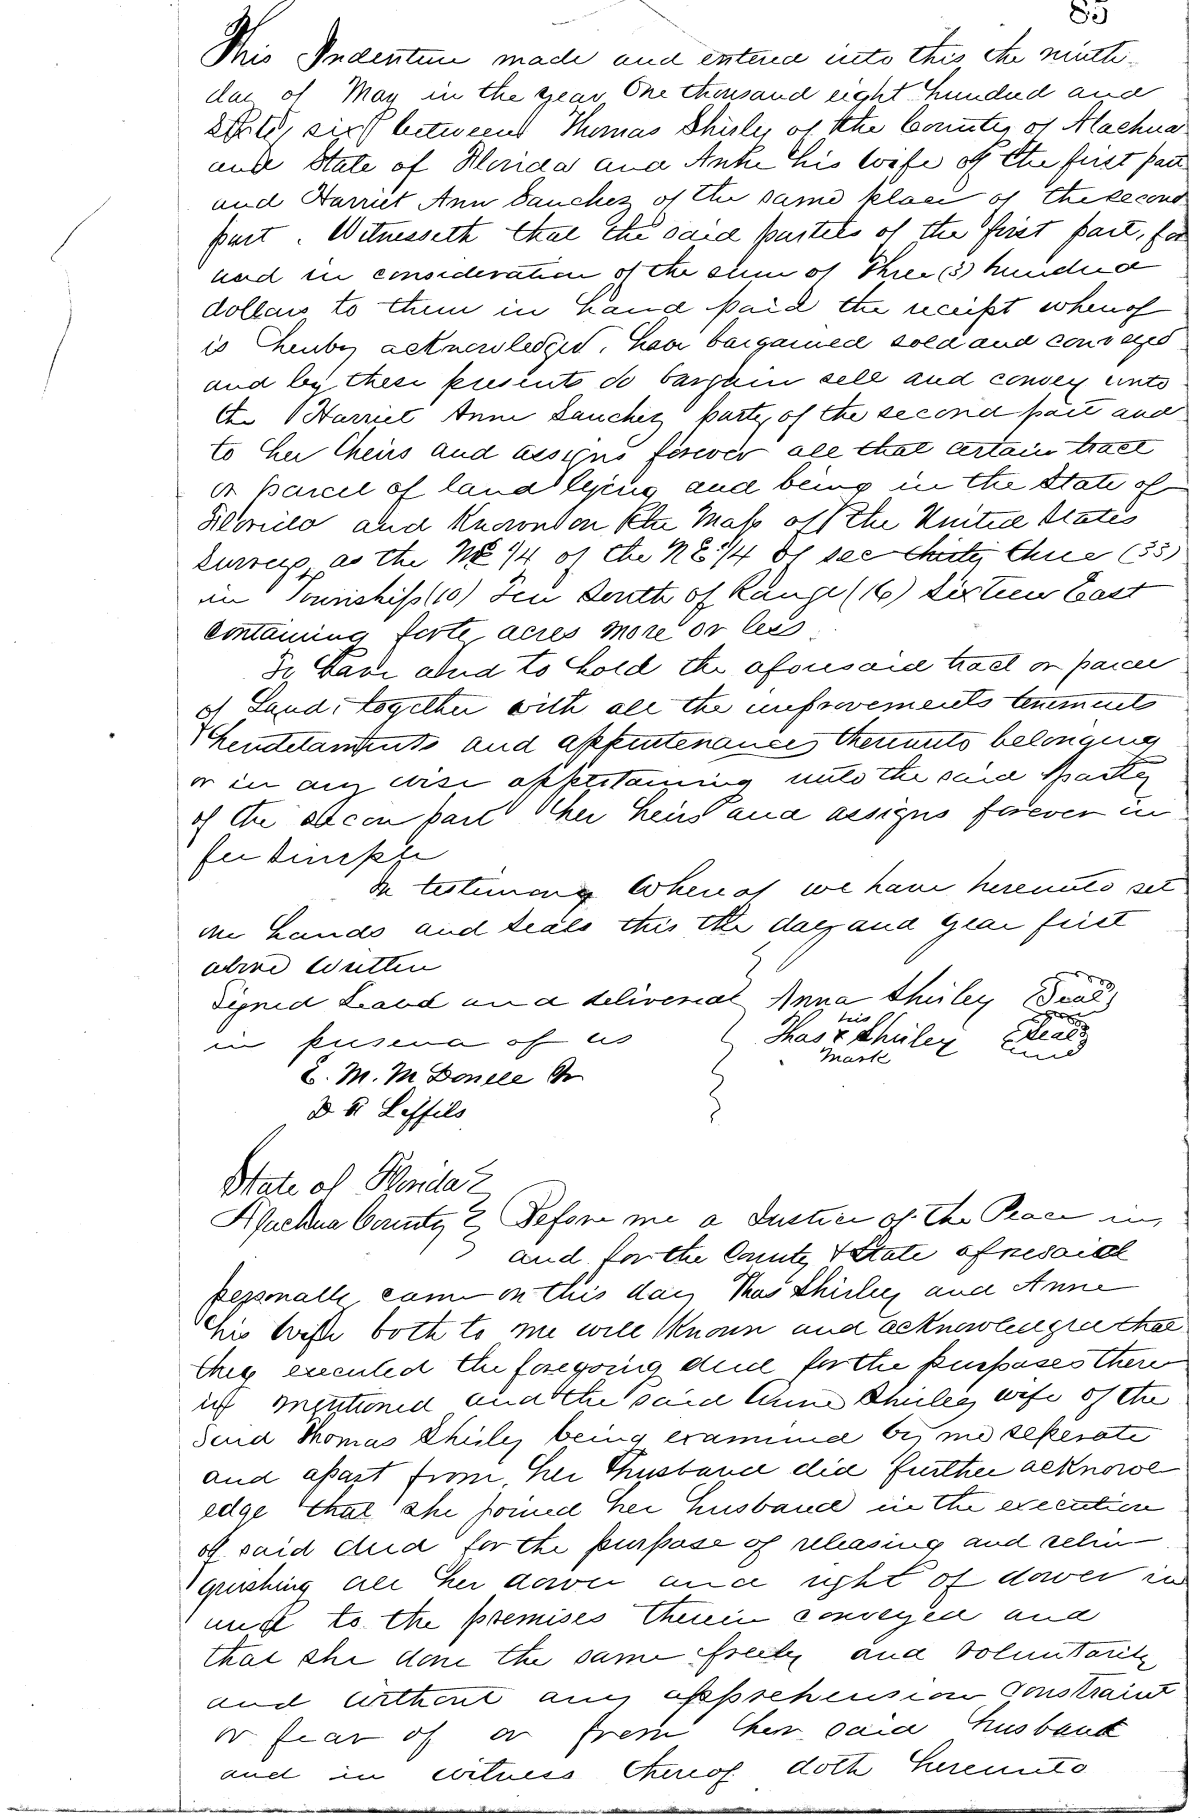 85
This Indenture made and entered into this the ninth
day of May in the year One thousand eight hundred and
sixty six between Thomas Shirley of the County of Alachua
and State of Florida and Anne his wife of the first part
and Harriet Ann Sanchez of the same place of the second
part. Witnesseth that the said parties of the first part, for
and in consideration of the sum of Three (3) hundred
dollars to them in hand paid the receipt whereof
is hereby acknowledged, have bargained sold and conveyed
and by these presents do bargain sell and convey unto
the Harriet Anne Sanchez party of the second part and
to her heirs and assigns forever all that certain tract
or parcel of land lying and being in the State of
Florida and Known on the Map of the United States
Surveys, as the NE 1/4 of the NE 1/4 of sec thirty three (33)
in Township (10) Ten South of Range (16) Sixteen East
containing forty acres more or less.
To have and to hold the aforesaid tract or parcel
of Land, together with all the improvements tenements
& heriditaments and appurtenances thereunto belonging
or in any wise appertaining unto the said party
of the secon part her heirs and assigns forever in
fee simple
In testimony Whereof we have hereunto set
our hands and seals this the day and year first
above written
Signed Seald and delivered Anna Shirley Seal
in presence of us Thos his x mark Shirley Seal
E. M. McDonell Jr
D R Leffils
State of Florida
Alachua County Before me a Justice of the Peace in,
and for the County & State aforesaid
personally came on this day Thos Shirley and Anne
his Wife both to me well Known and acknowledged that
they executed the foregoing deed for the purposes there
in mentioned and the said Anne Shirley wife of the
Said Thomas Shirley being examined by me seperate
and apart from her husband did further acknowl
edge that she joined her husband in the execution
of said deed for the purpose of releasing and relin
quishing all her dower and right of dower in
and to the premises therein conveyed and
that she done the same freely and voluntarily
and without any apprehension constraint
or fear of or from her said husband
and in witness thereof doth hereunto